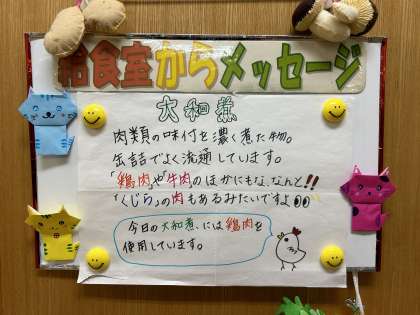 給食室からメッセージ
大和煮
肉類の味付を濃く煮た物。
缶詰でよく流通しています。
「鶏肉」や「牛肉」のほかにもな、なんと!!
「くじら」の肉もあるみたいですよ
今日の大和煮、には鶏肉を
使用しています。